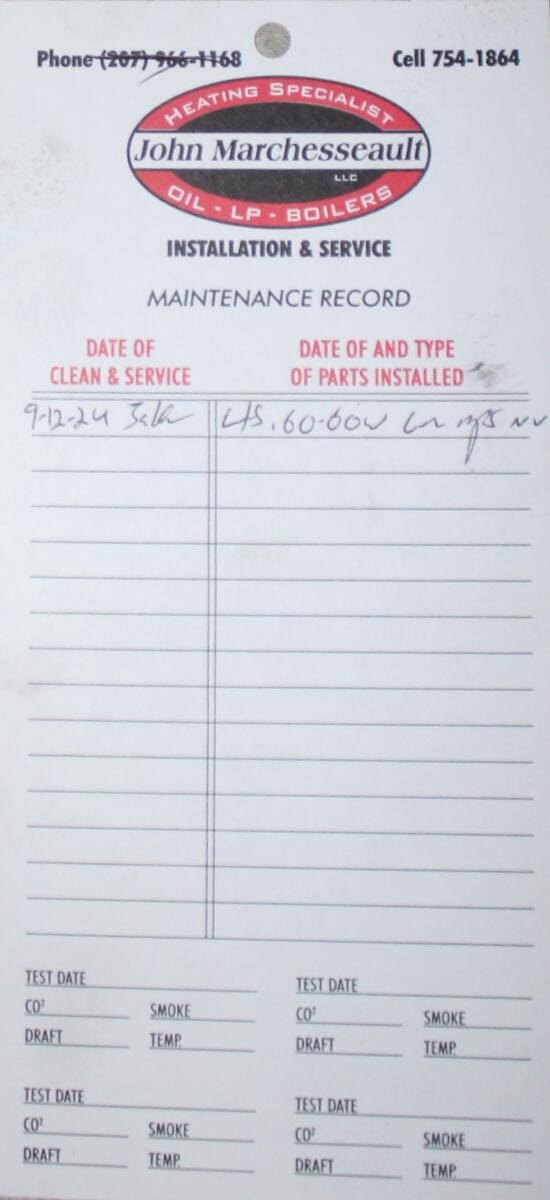 Phone (207) 966-1168 Cell 754-1864
HEATING SPECIALIST
John Marchesseault
LLC
OIL - LP - BOILERS
INSTALLATION & SERVICE
MAINTENANCE RECORD
DATE OF
CLEAN & SERVICE
DATE OF AND TYPE
OF PARTS INSTALLED
9-12-24 .60-60W
TEST DATE TEST DATE
CO² SMOKE CO² SMOKE
DRAFT TEMP. DRAFT TEMP.
TEST DATE TEST DATE
CO² SMOKE CO² SMOKE
DRAFT TEMP. DRAFT TEMP.